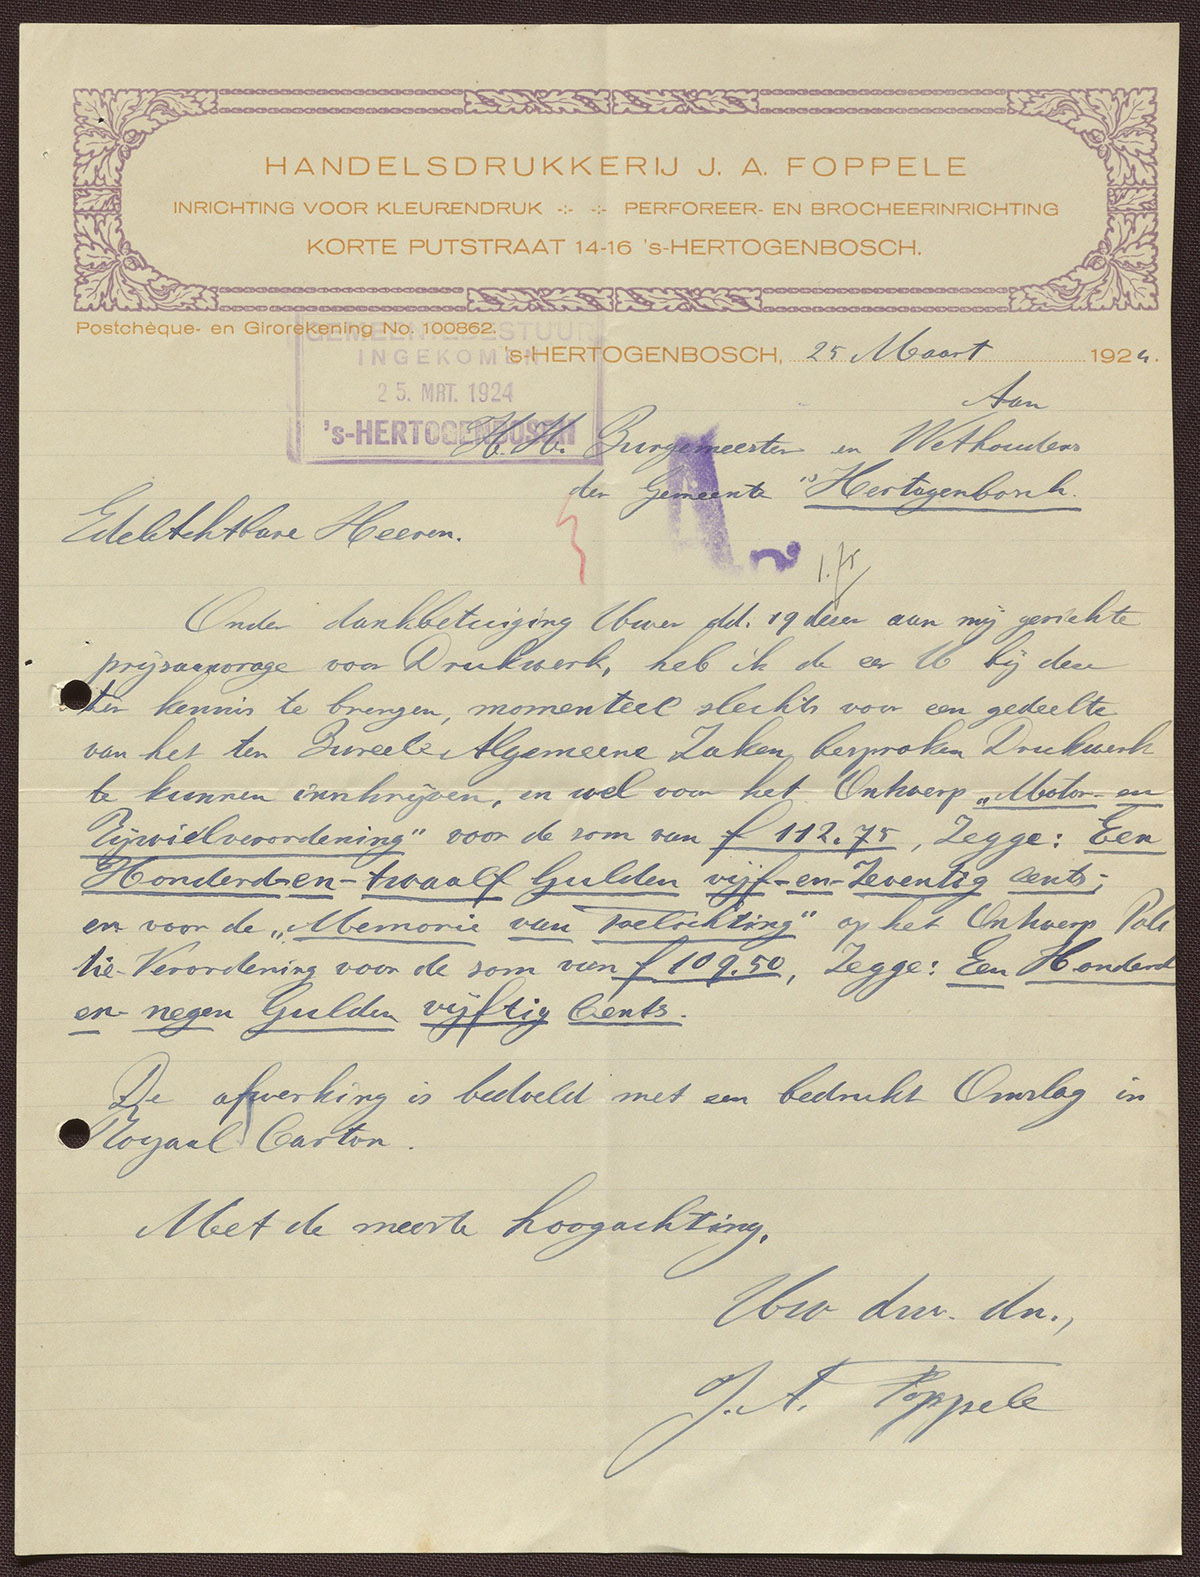 HANDELSDRUKKERIJ J. A. FOPPELE
INRICHTING VOOR KLEURENDRUK -:- -:- PERFOREER- EN BROCHEERINRICHTING
KORTE PUTSTRAAT 14-16 's-HERTOGENBOSCH.
Postchèque- en Girorekening No. 100862.
GEMEENTEBESTUUR
INGEKOMEN
25. MRT. 1924
's-HERTOGENBOSCH
's-HERTOGENBOSCH, 25 Maart 1924.
Aan
H.H. Burgemeester en Wethouders
der Gemeente 's Hertogenbosch.
EdelAchtbare Heeren.
Onder dankbetuiging Uwer dd. 19 dezer aan mij gerichte
prijsaanvrage voor Drukwerk, heb ik de eer U bij deze
ter kennis te brengen, momenteel slechts voor een gedeelte
van het ten Bureele Algemeene Zaken, besproken Drukwerk
te kunnen inschrijven, en wel voor het Ontwerp „Motor- en
Rijwielverordening" voor de som van f 112.75, Zegge: Een
Honderd-en-twaalf Gulden vijf-en-Zeventig cents;
en voor de „Memorie van Toelichting" op het Ontwerp Poli
tie-Verordening voor de som van f 109.50, Zegge: Een Honderd
en- negen Gulden vijftig Cents.
De afwerking is bedoeld met een bedrukt Omslag in
Royaal Carton.
Met de meeste hoogachting,
Uw dw. dn.,
J. A. Foppele